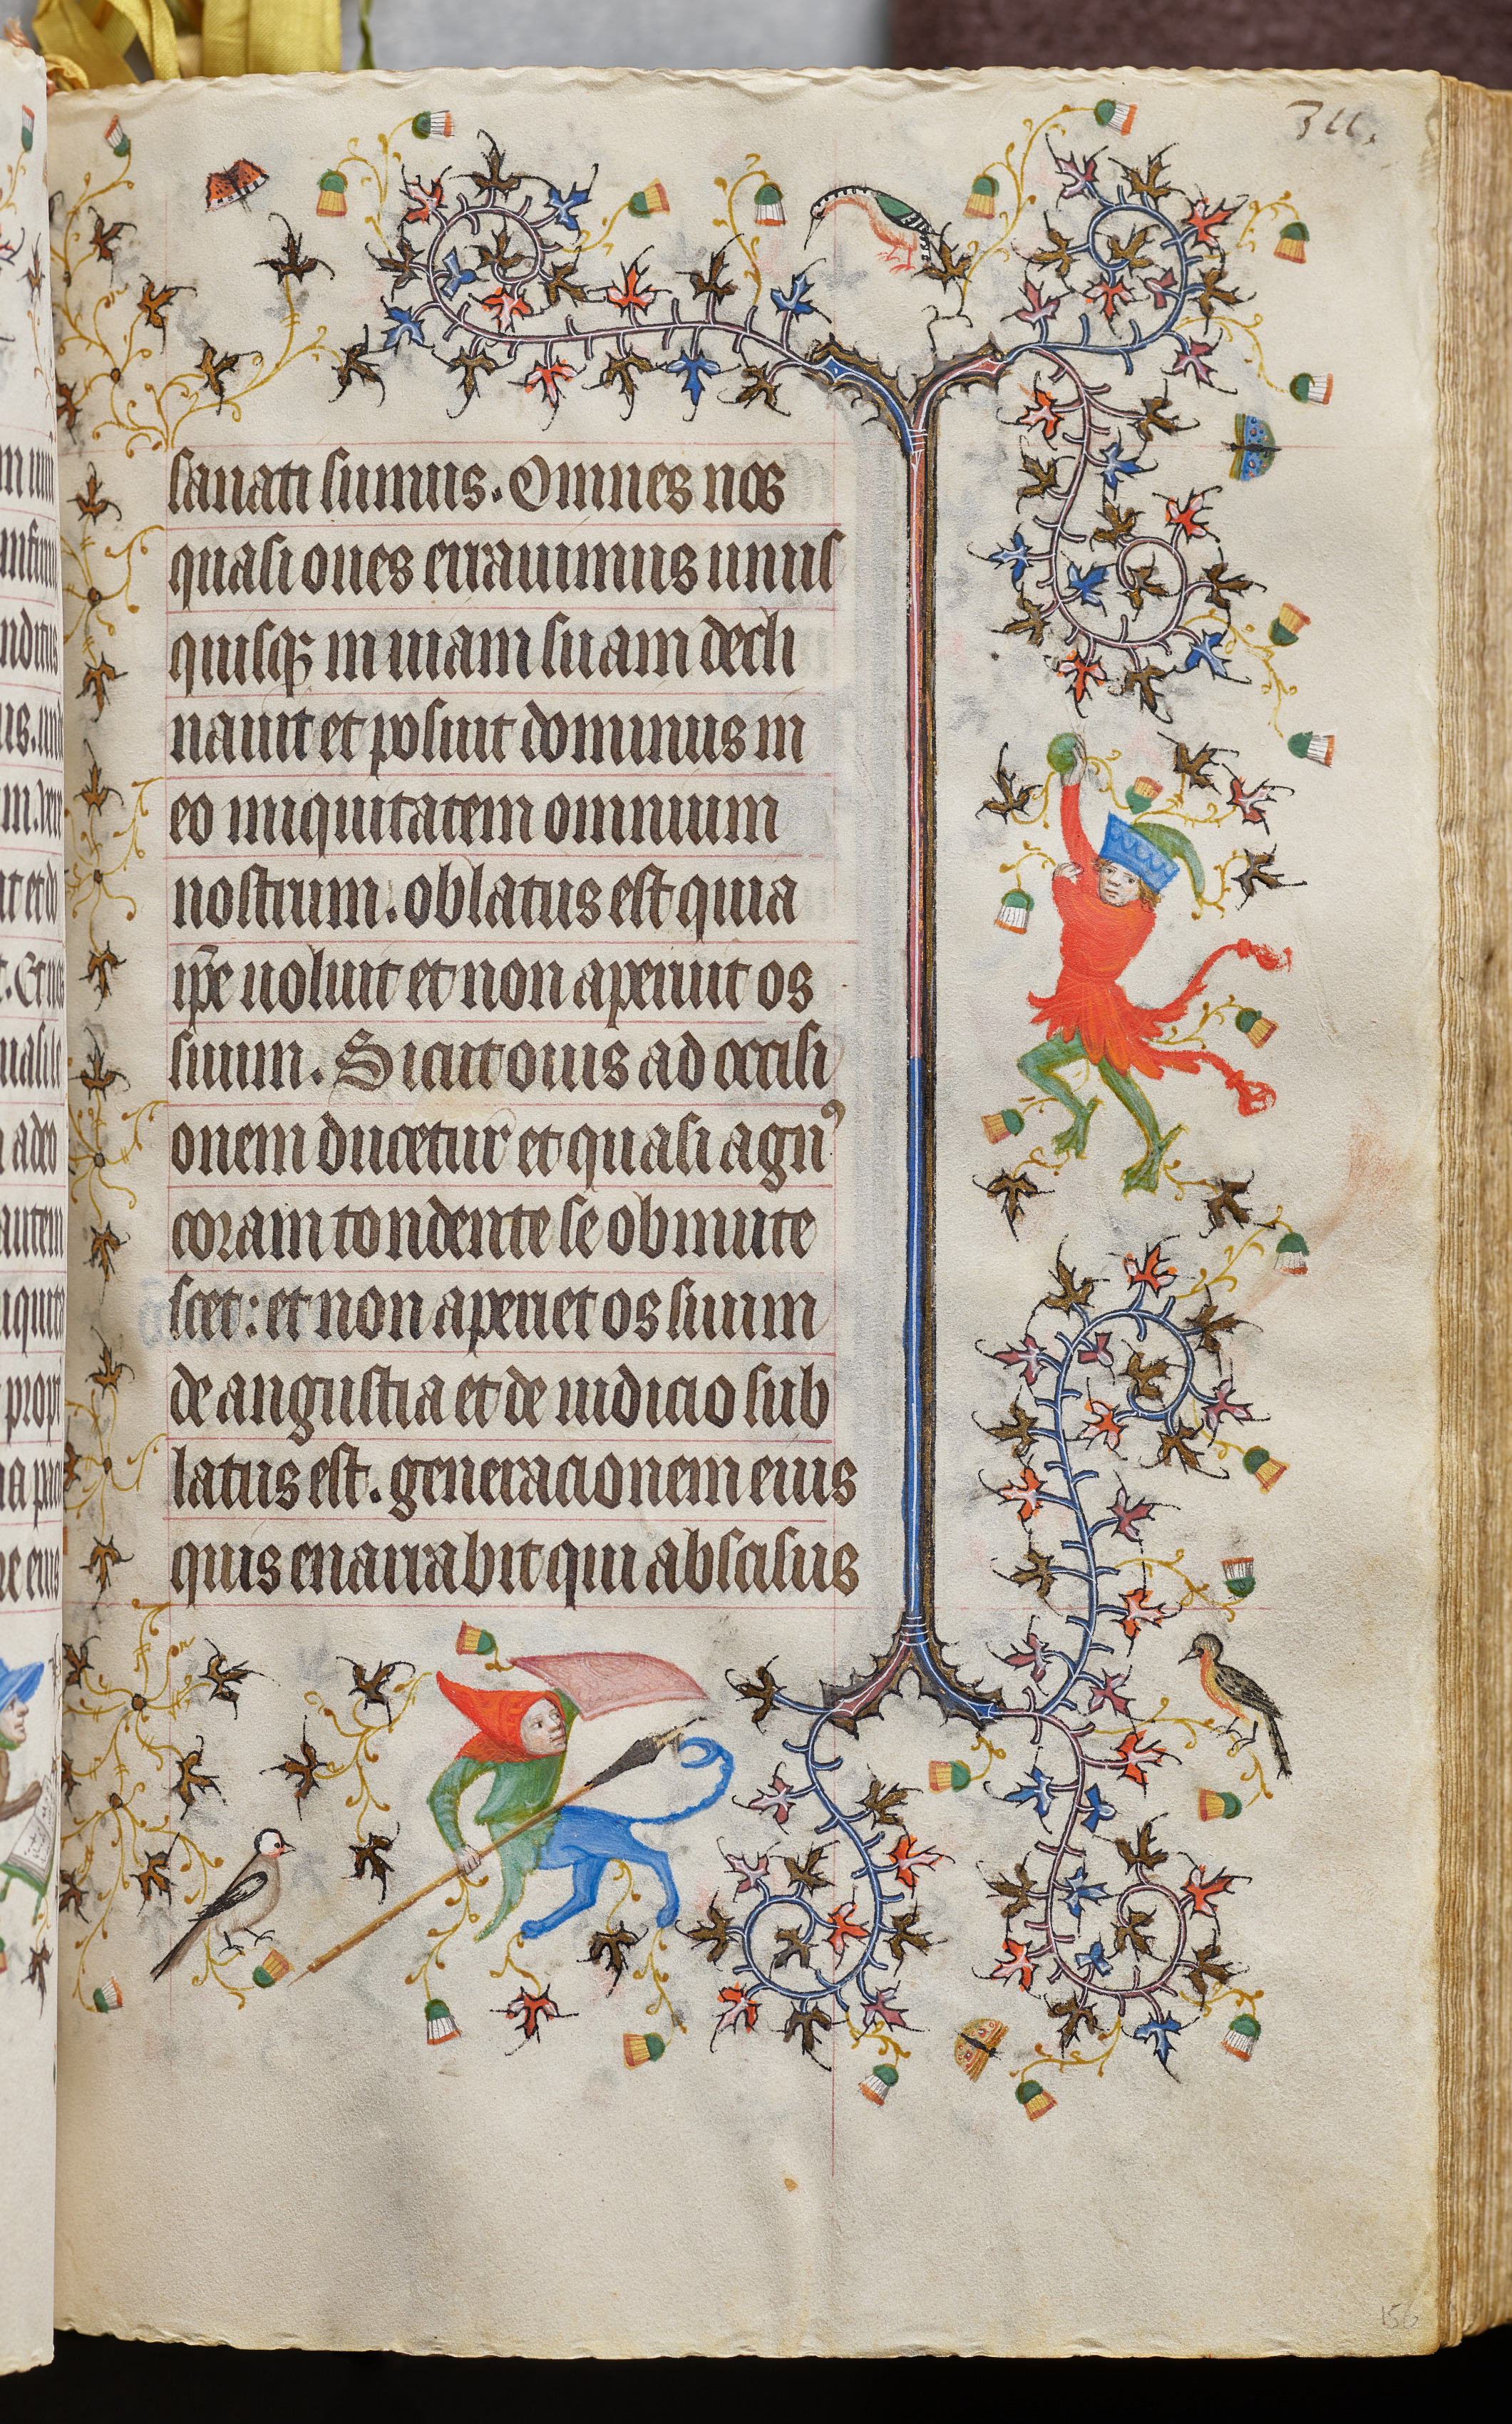 311.
sanati sumus. Omnes nos
quasi oues errauimus unus
quisq; in uiam suam decli
nauit et posuit dominus in
eo iniquitatem omnium
nostrum. oblatus est quia
ip̄e uoluit et non aperuit os
suum. Sicut ouis ad occisi
onem ducetur et quasi agnꝰ
coram tondente se obmute
scet: et non aperiet os suum
de angustia et de iudicio sub
latus est. generacionem eius
quis enarrabit qui abscisus
156